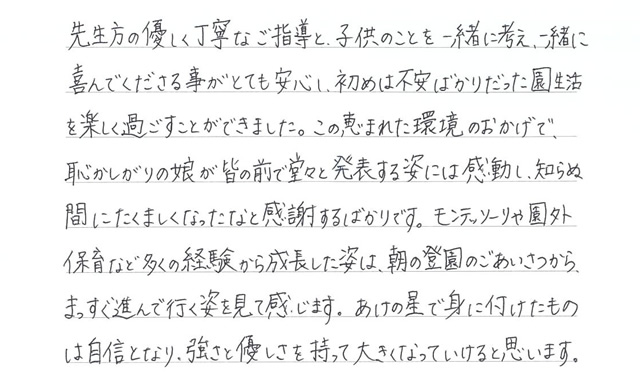 先生方の優しく丁寧なご指導と、子供のことを一緒に考え、一緒に
喜んでくださる事がとても安心し、初めは不安ばかりだった園生活
を楽しく過ごすことができました。この恵まれた環境のおかげで、
恥かしがりの娘が皆の前で堂々と発表する姿には感動し、知らぬ
間にたくましくなったなと感謝するばかりです。モンテッソーリや園外
保育など多くの経験から成長した姿は、朝の登園のごあいさつから、
まっすぐ進んで行く姿を見て感じます。あけの星で身に付けたもの
は自信となり、強さと優しさを持って大きくなっていけると思います。